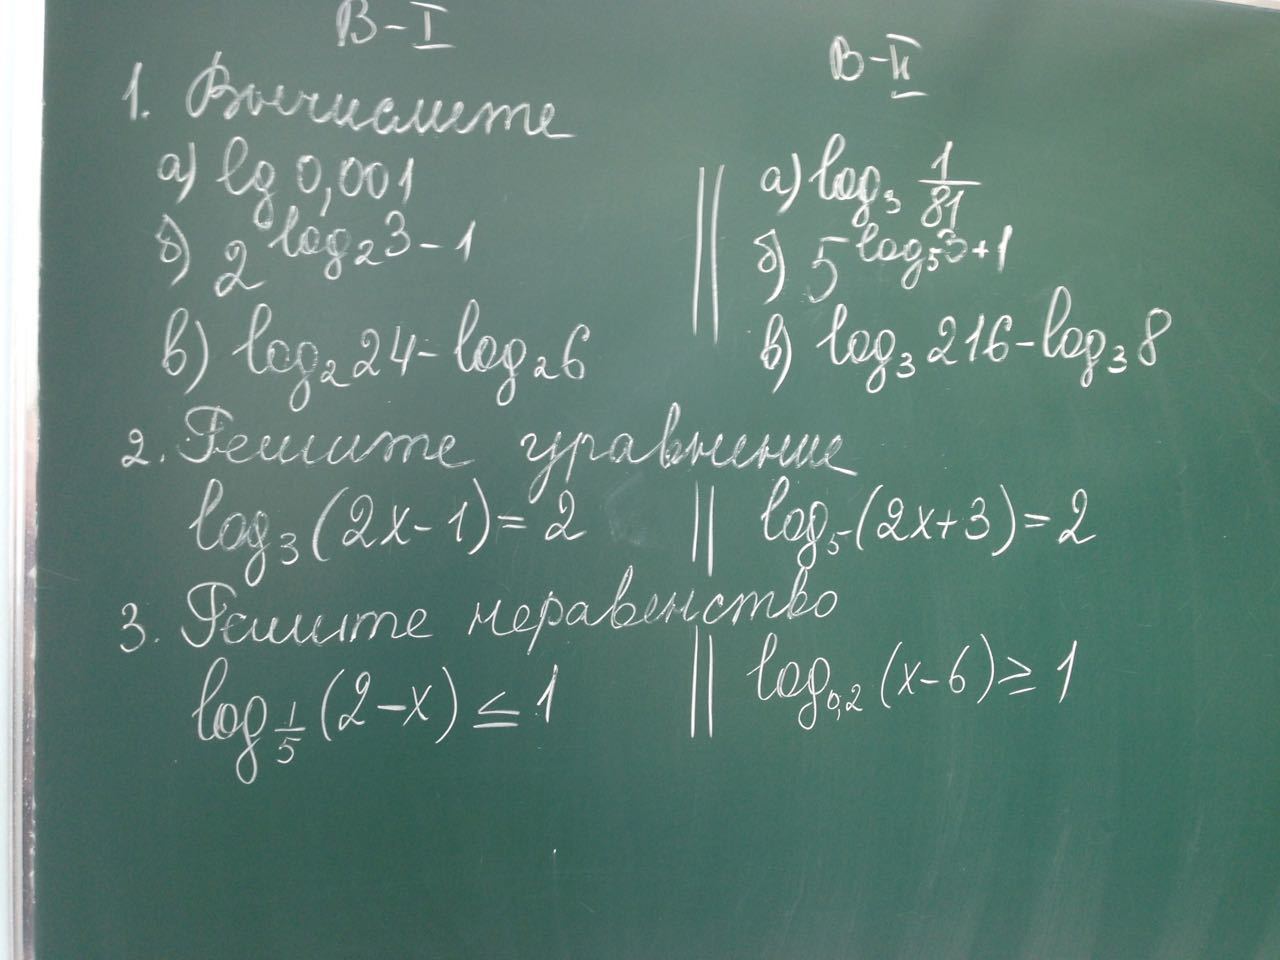 В-I В-II
1. Вычислите
а) lg 0,001 || а) log₃ 1/81
б) 2^(log₂3-1) || б) 5^(log₅3+1)
в) log₂24-log₂6 || в) log₃216-log₃8
2. Решите уравнение
log₃(2x-1)=2 || log₅(2x+3)=2
3. Решите неравенство
log_(1/5)(2-x)≤1 || log_(0,2)(x-6)≥1